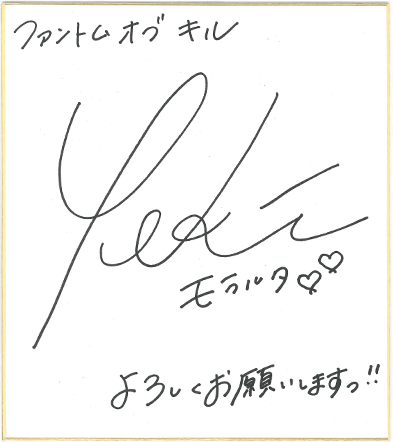 ファントム オブ キル
Yuki
モラルタ♡♡
よろしくお願いしますっ!!